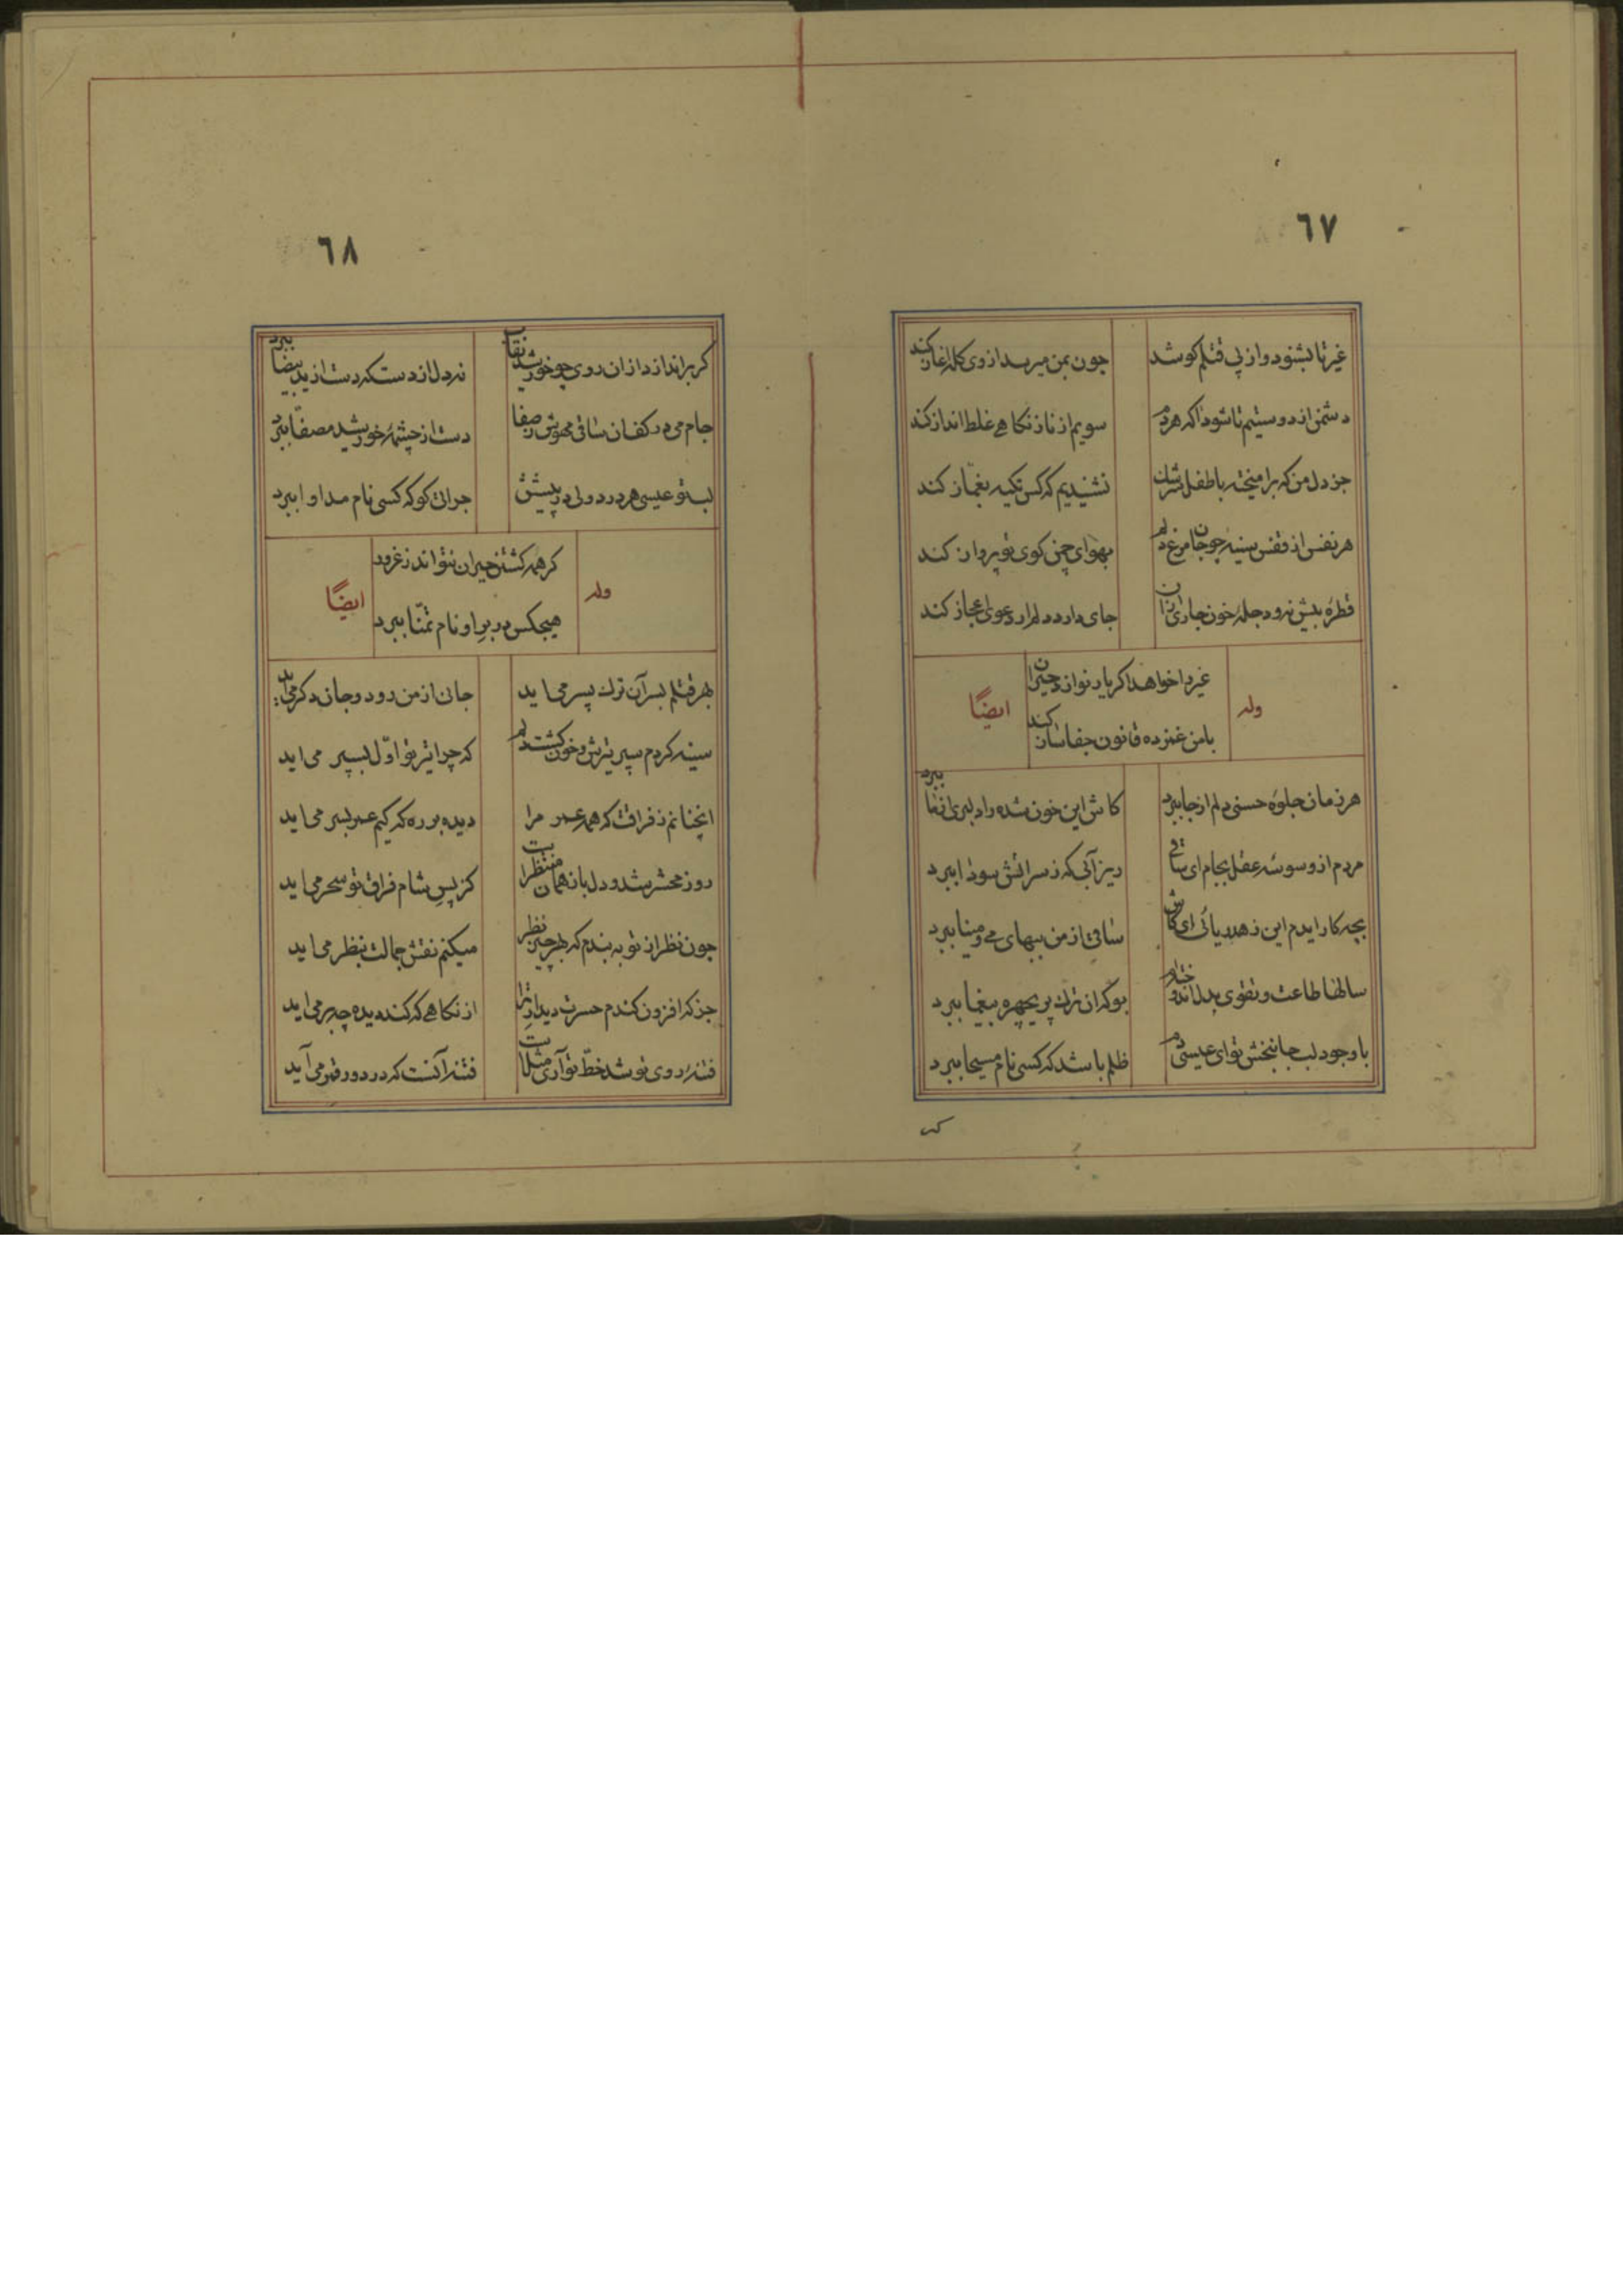 ٦٧
غیر تا بشنود و از پی قتلم کوشد
چون بمن میرسد از وی کله اغاز کند
دشمن از دوستیم تا شود اکه هردم
سویم از ناز نکاهی غلط انداز کند
جز دل من که برامیخته با طفل سرشک
نشنیدیم که کس تکیه بغماز کند
هر نفس از قفس سینه چو جان مرغ دلم
بهوای چمن کوی تو پرواز کند
قطرهٔ بیش نه و دجلهٔ خون جاری از آن
جای دارد دلم ار دعوی اعجاز کند
وله
غیر را خواهد اکر یار نوازد حیران
با من غمزده قانون جفا ساز کند
ایضًا
هر زمان جلوهٔ حسنی دلم از جا ببرد
کاش این خون شده را دلبری انجا ببرد
مردم از وسوسهٔ عقل بجام ای ساقی
ریز آبی که ز سر اتش سودا ببرد
بچه کار ایدم این زهد ریائی ای کاش
ساقی از من ببهای می و مینا ببرد
سالها طاعت و تقوی بدل اندوخته‌ام
بو که ان ترک پریچهره بیغما ببرد
با وجود لب جانبخش تو ای عیسی دم
ظلم باشد که کسی نام مسیحا ببرد
کر
٦٨
کر براندازد از ان روی چو خورشید نقاب
نه دل از دست که دست از ید بیضا ببرد
جام می در کف ان ساقی مهوش ز صفا
دست از چشمهٔ خورشید مصفّا ببرد
لب تو عیسی هر درد ولی در پیشش
جرات کو که کسی نام مداوا ببرد
وله
کر همه کشتن حیران نتواند ز غرور
هیچکس در بر او نام تمنّا ببرد
ایضًا
بهر قتلم بسر آن ترک پسر می اید
جانی از من رود و جان دکر می اید
سینه کردم سپر تیرش و خون کشت دلم
که چرا تیر تو اوّل بسپر می اید
انچنانم ز فراقت که همه عمر مرا
دیده بر ره که کیم عمر بسر می اید
روز محشر شد و دل باز همان منتظر است
کز پس شام فراق تو سحر می اید
چون نظر از تو به بندم که بهر چیز نظر
میکنم نقش جمالت بنظر می اید
جز که افزون کندم حسرت دیدار ترا
از نکاهی که کند دیده چه بر می اید
فتنهٔ روی تو شد خطّ تو آری مثل است
فتنه آنست که در دور قمر می آید